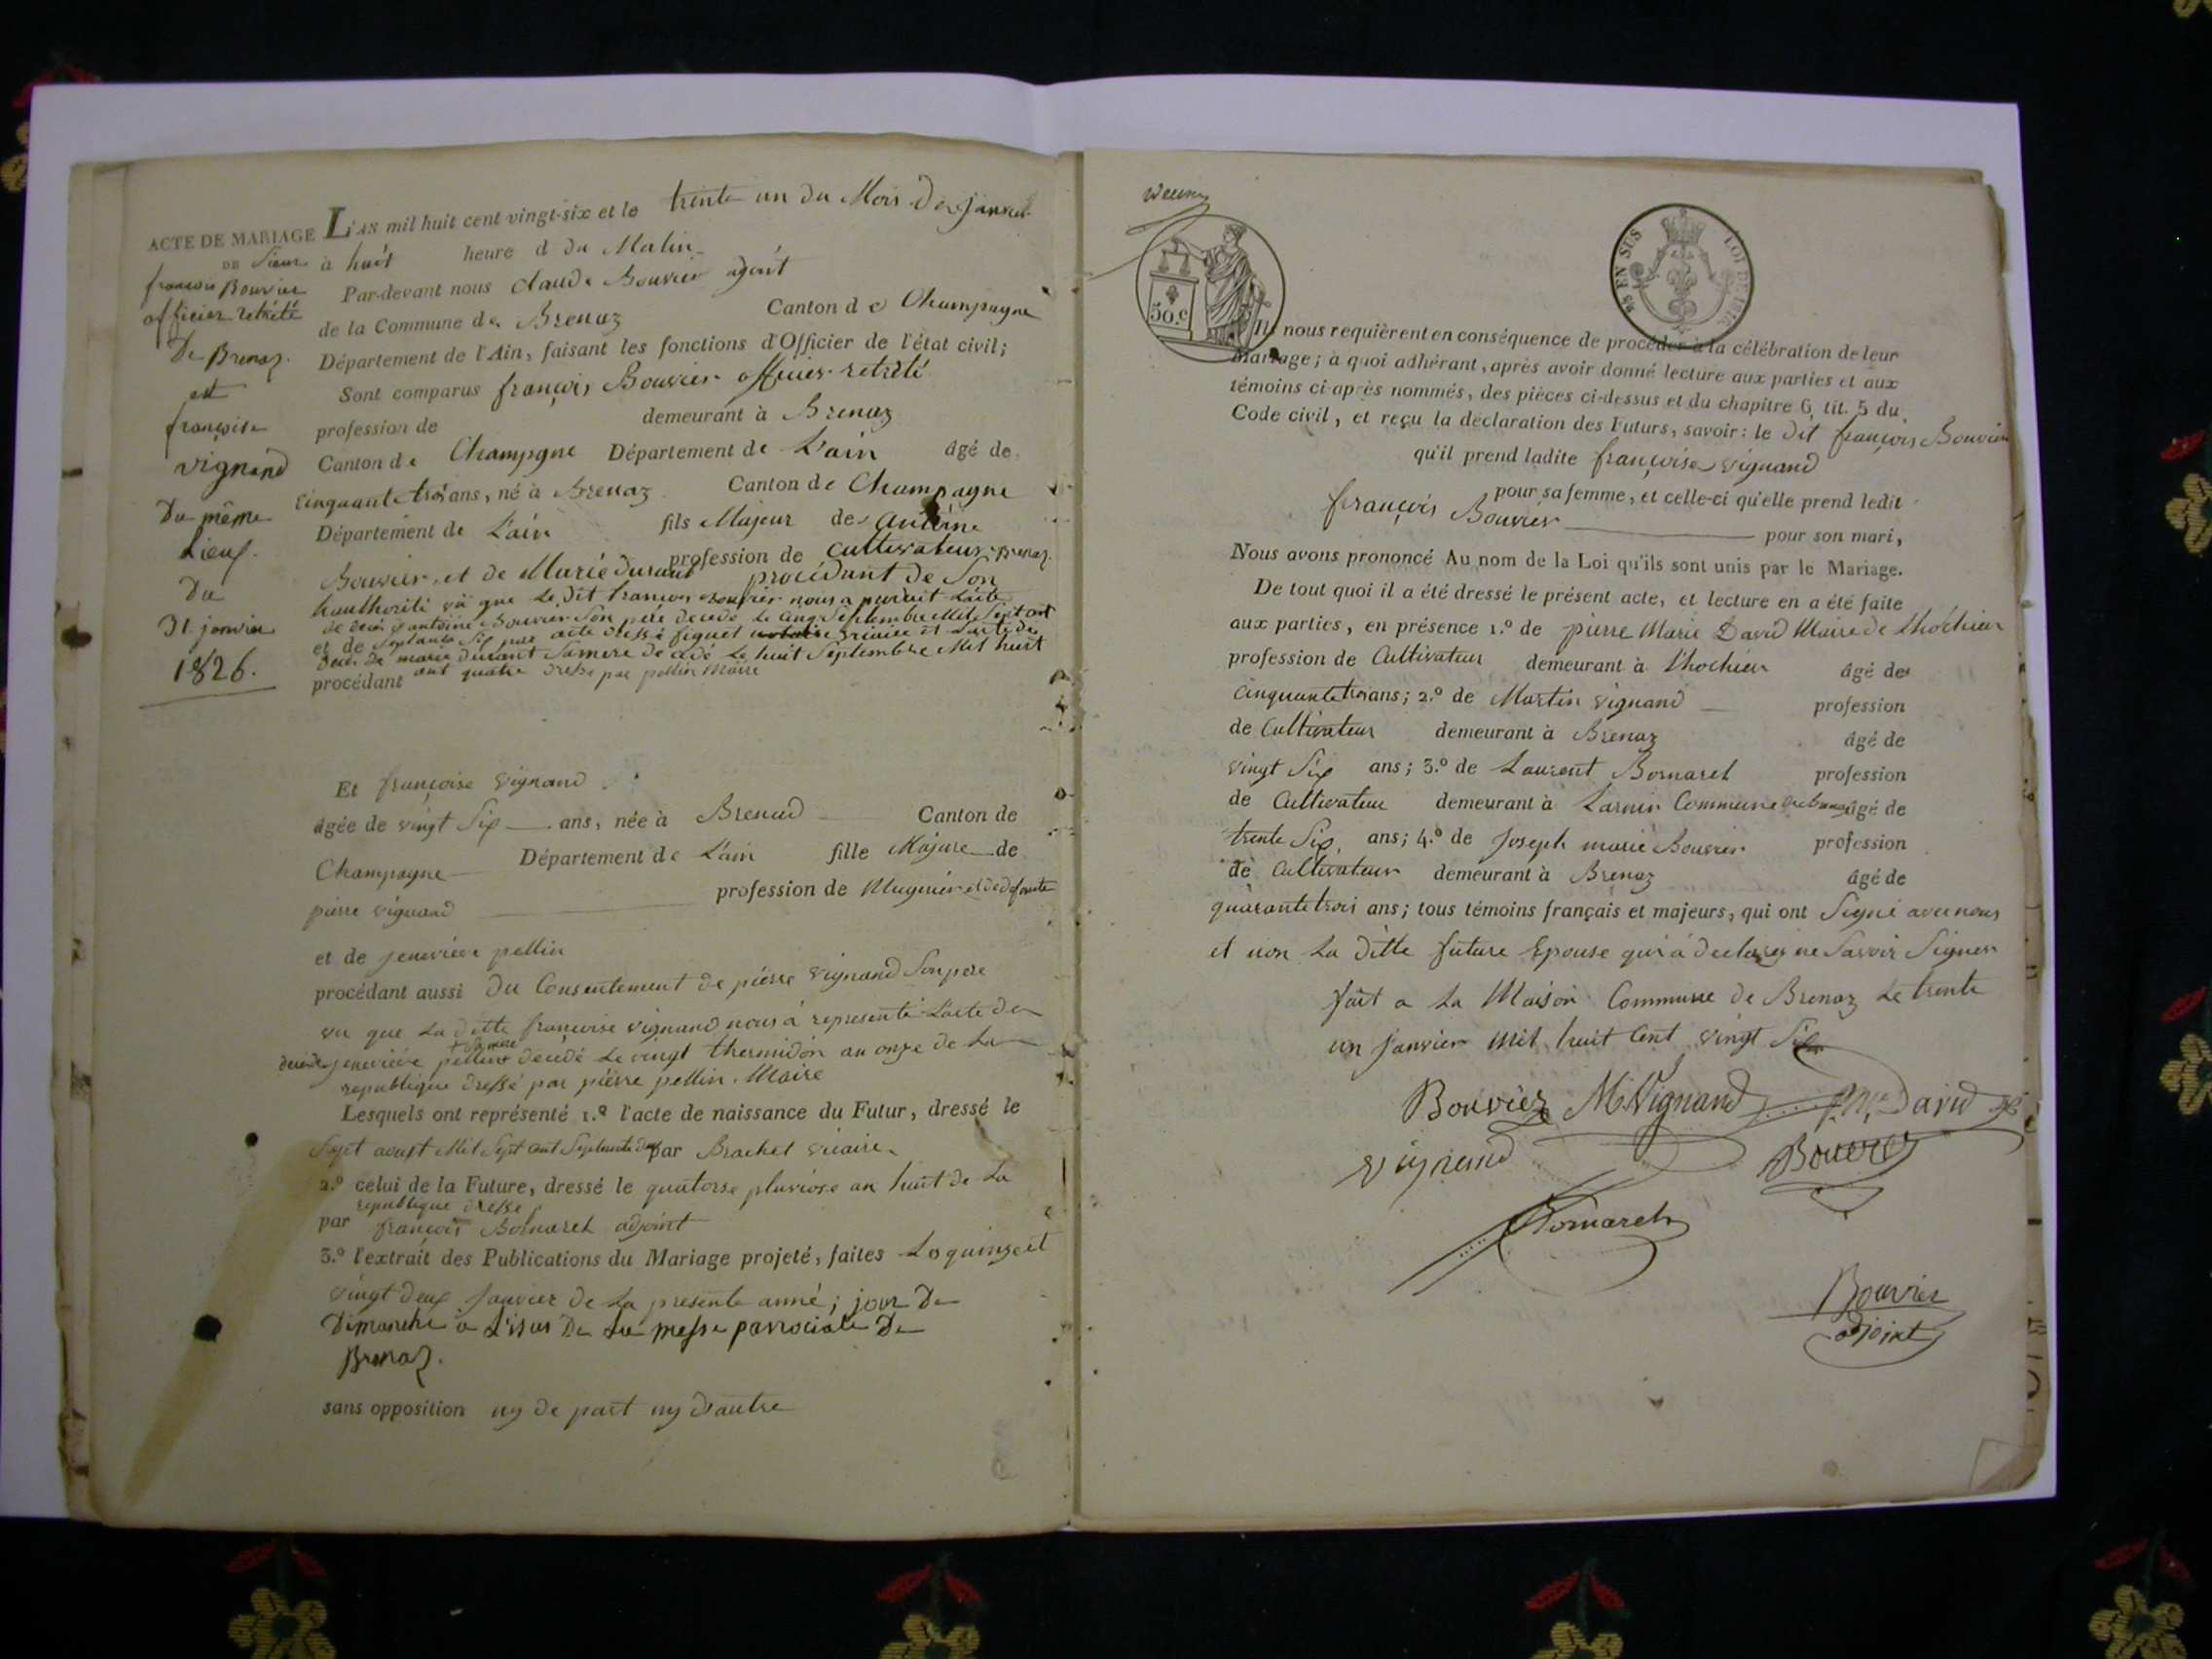 ACTE DE MARIAGE
DE Sieur
françois Bouvier
officier retrété
De Brenaz.
et
françoise
vignand
Du même
Lieux.
Du
31 janvier
1826.
L'AN mil huit cent vingt-six et le trente un du Mois de janvier
à huit heure d du Matin
Par-devant nous claude Bouvier
de la Commune de Brenaz Canton de Champagne
Département de l'Ain, faisant les fonctions d'Officier de l'état civil;
Sont comparus françois Bouvier officier retrété
profession de demeurant à Brenaz
Canton de Champagne Département de L'ain âgé de
Cinquante trois ans, né à Brenaz Canton de Champagne
Département de L'ain fils Majeur de antoine
profession de Cultivateur
Bouvier et de Marie durant procédant de Son
hauthorité vû que le dit francois Bouvier nous a produit L'acte
de antoine Bouvier Son père décédé le cinq Septembre Mil Sept cent
Septante Six par acte dressé et L'acte de
marie durant Sa mere le huit Septembre Mil huit
procédant cent quatre dressé par pellin Maire
Et françoise vignand
âgée de vingt Six ans, née à Brenaz Canton de
Champagne Département de L'ain fille Majure de
pierre vignand profession de Mugnier et de defunte
et de jenevieve pellin
procédant aussi du Consentement de pierre vignand Son pere
vu que La ditte françoise vignand nous à representé L'acte de
jenevieve pellin sa mere decédé Le vingt thermidor an onze de La
republique dressé par pièrre pellin Maire
Lesquels ont représenté 1.º l'acte de naissance du Futur, dressé le
Sept aoust Mil Sept cent Septente deux par Brachet vicaire
2.º celui de la Future, dressé le quatorse pluviose an huit de La
republique dressé
par françois Bornarel adjoint
3.º l'extrait des Publications du Mariage projeté, faites Le quinze et
vingt deux Janvier de La presente anné; jour De
Dimanche à L'issus De La messe parrociale De
Brenaz.
sans opposition ny de part ny d'autre
50.c
EN SUS LOI DE
Ils nous requièrent en conséquence de procéder à la célébration de leur
Mariage; à quoi adhérant, après avoir donné lecture aux parties et aux
témoins ci-après nommés, des pièces ci-dessus et du chapitre 6, tit. 5 du
Code civil, et reçu la déclaration des Futurs, savoir: le dit françois Bouvier
qu'il prend ladite françoise vignand
pour sa femme, et celle-ci qu'elle prend ledit
françois Bouvier pour son mari,
Nous avons prononcé Au nom de la Loi qu'ils sont unis par le Mariage.
De tout quoi il a été dressé le présent acte, et lecture en a été faite
aux parties, en présence 1.º de pierre Marie David Maire de Lhochieu
profession de Cultivateur demeurant à Lhochieu âgé de
Cinquante trois ans; 2.º de Martin vignand profession
de Cultivateur demeurant à Brenaz âgé de
vingt Six ans; 3.º de Laurent Bornarel profession
de Cultivateur demeurant à Commune de Brenaz âgé de
trente Six ans; 4.º de Joseph marie Bouvier profession
de Cultivateur demeurant à Brenaz âgé de
quarante trois ans; tous témoins français et majeurs, qui ont Signé avec nous
et non La ditte future Epouse qui à declaré ne Savoir Signer
fait a La Maison Commune de Brenaz Le trente
un janvier mil huit Cent vingt Six
Bouvier M. Vignand P. M. David
vignand Bouvier
Bornarel
Bouvier
adjoint